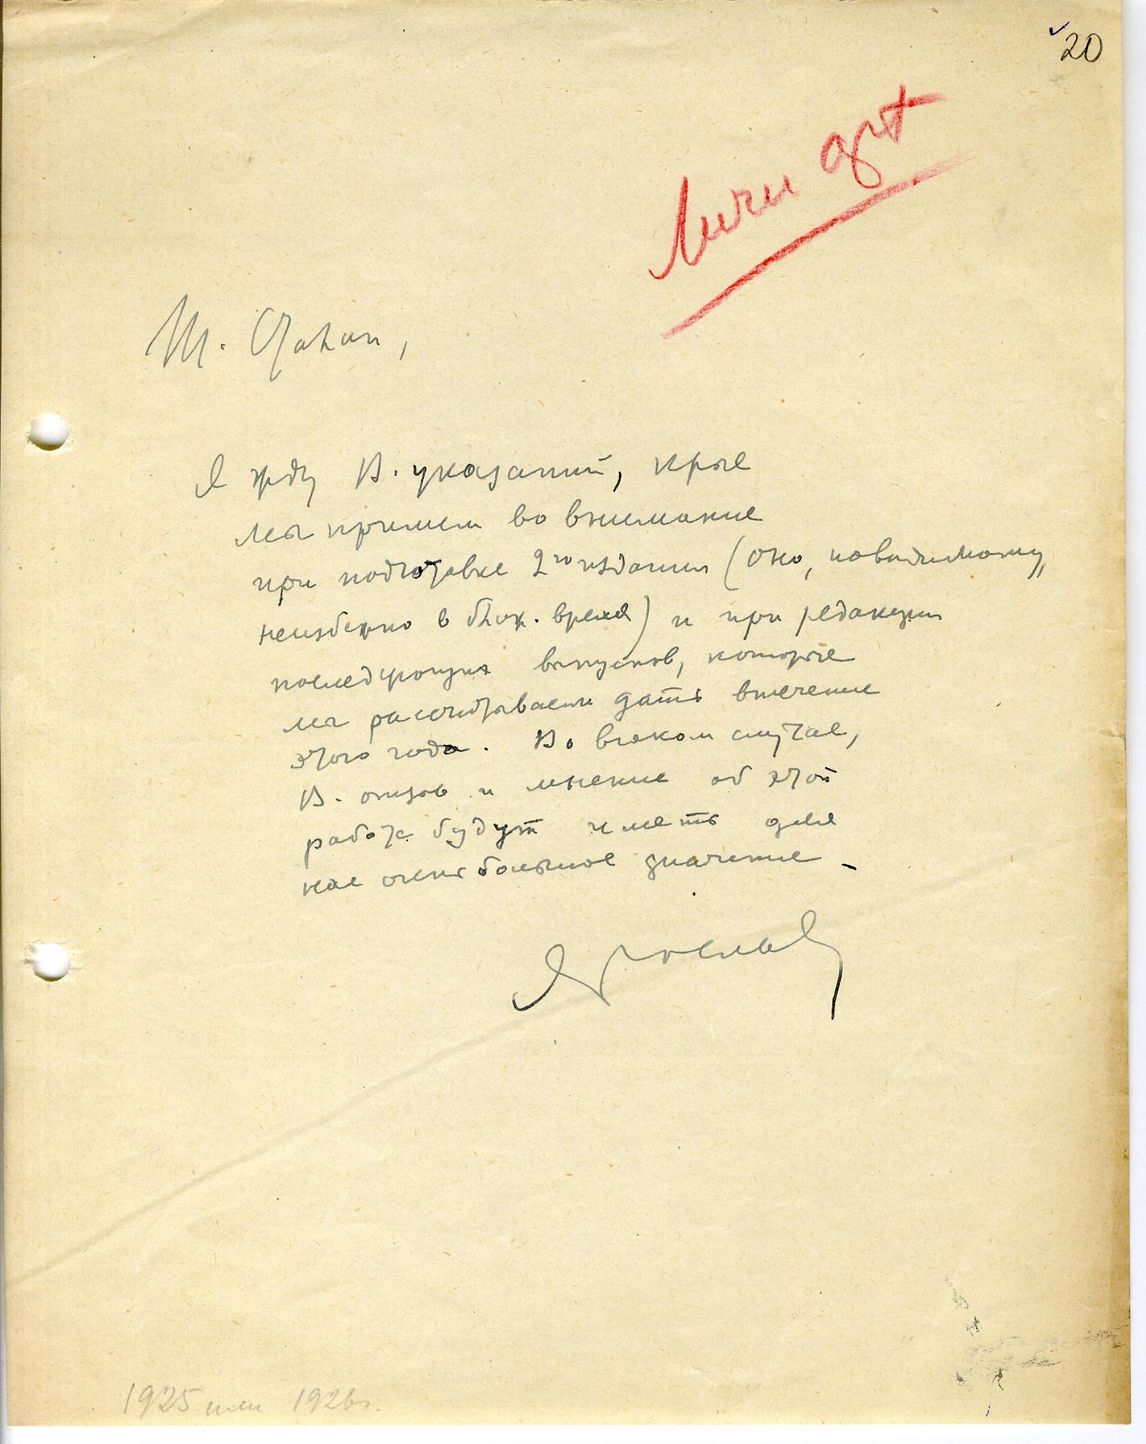 20
Личн арх
Т. Сталин,
Я жду В. указаний, крые
мы примем во внимание
при подготовке 2го издания (оно, повидимому,
неизбежно в ближ. время) и при редакции
последующих выпусков, которые
мы рассчитываем дать втечение
этого года. Во всяком случае,
В. отзыв и мнение об этой
работе будут иметь для
нас очень большое значение.
1925 или 1926г.